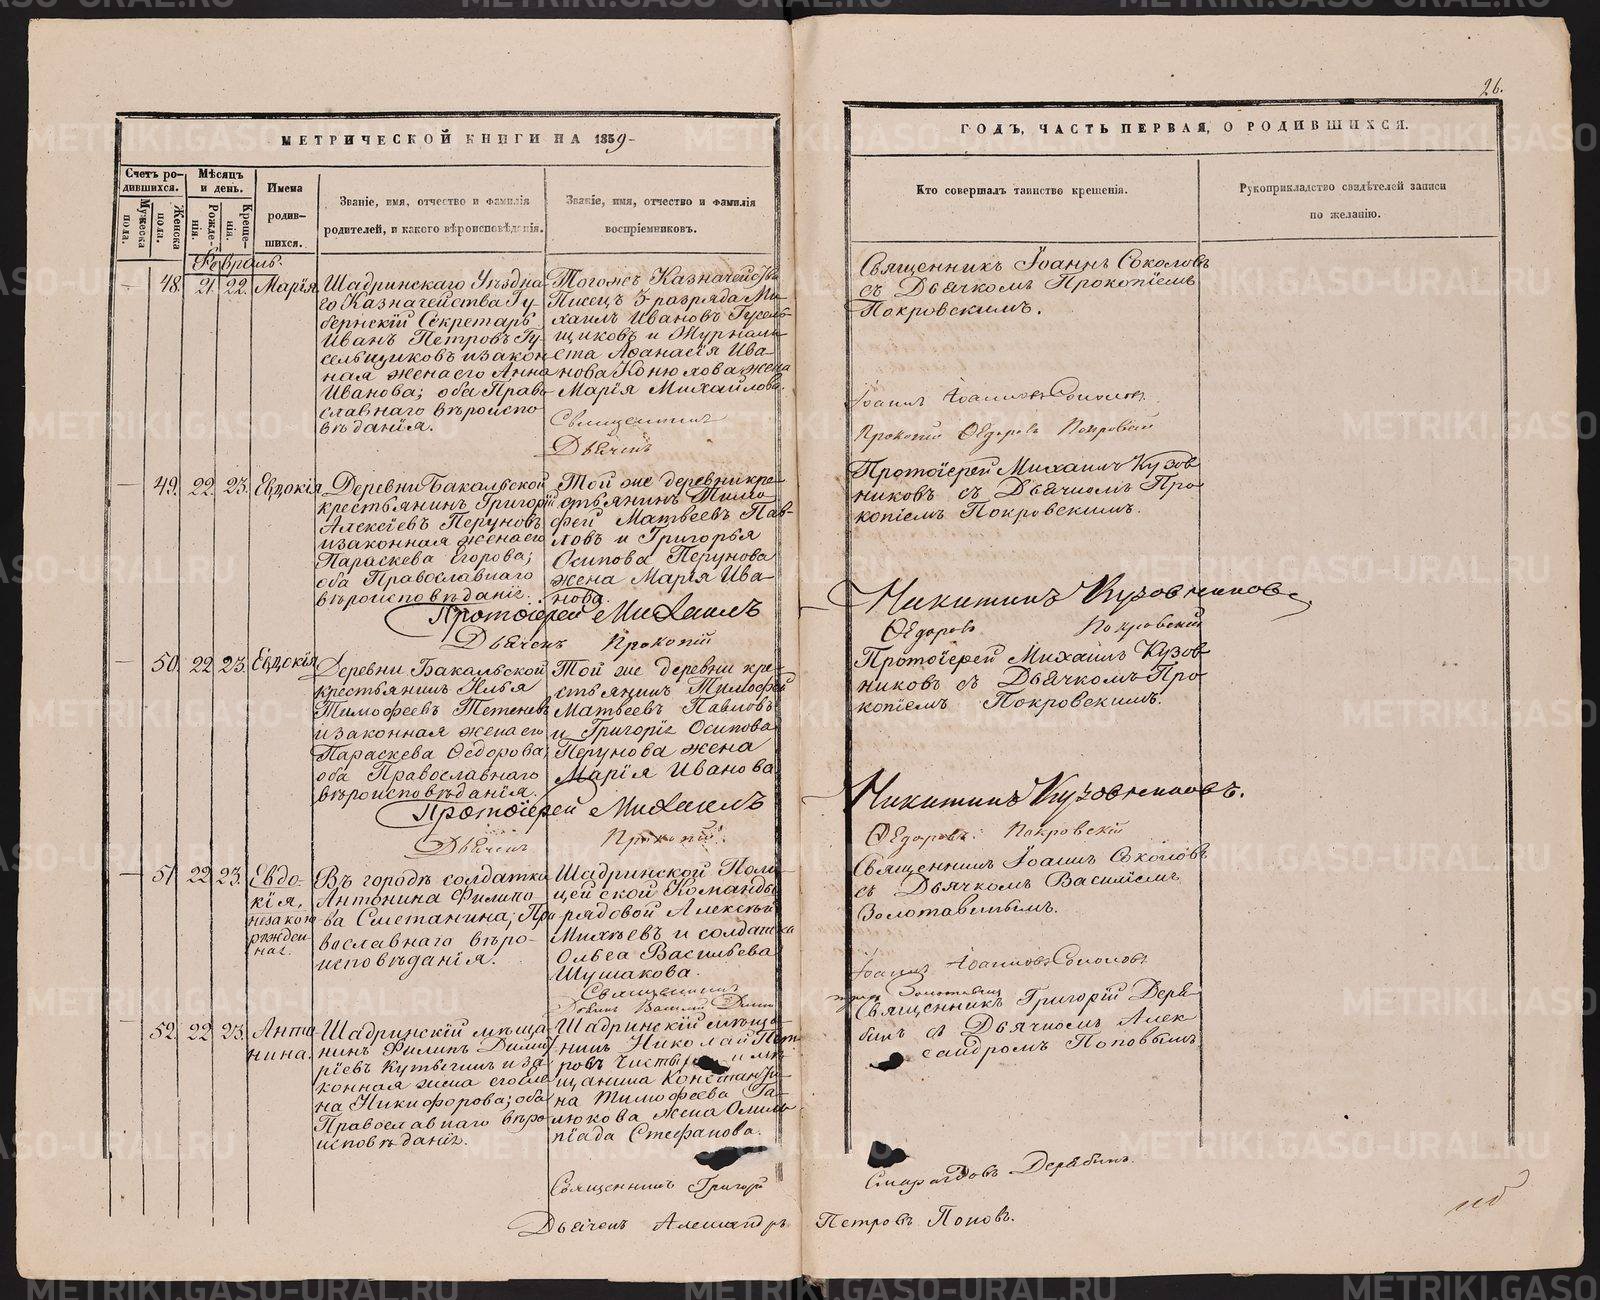 26.
МЕТРИЧЕСКОЙ КНИГИ НА 1859
ГОДЪ, ЧАСТЬ ПЕРВАЯ, О РОДИВШИХСЯ.
Счетъ ро-
дившихся.
Мужеска
пола.
Женска
пола.
Мѣсяцъ
и день.
Рожде-
нія.
Креще-
нія.
Имена
родив-
шихся.
Званіе, имя, отчество и фамилія
родителей, и какого вѣроисповѣданія.
Званіе, имя, отчество и фамилія
воспріемниковъ.
Кто совершалъ таинство крещенія.
Рукоприкладство свидѣтелей записи
по желанію.
Февраль.
48. 21. 22. Марія
Шадринскаго Уѣздна-
го Казначейства Гу-
бернскій Секретарь
Иванъ Петровъ Гу-
сельщиковъ и закон-
ная жена его Анна
Иванова; оба Право-
славнаго вѣроиспо-
вѣданія.
Тогожъ Казначейства
Писецъ 3 разряда Ми-
хаилъ Ивановъ Гусель-
щиковъ и Журнали-
ста Афанасія Ива-
нова Конюхова жена
Марія Михайлова.
Священникъ
Дьячекъ
Священникъ Іоаннъ Соколовъ
съ Дьячкомъ Прокопіемъ
Покровскимъ.
Іоаннъ Іоанновъ Соколовъ
Прокопій Ѳедоровъ Покровскій
49. 22. 23. Евдокія
Деревни Бакальской
крестьянинъ Григорій
Алексіевъ Перуновъ
и законная жена его
Параскева Егорова;
оба Православнаго
вѣроисповѣданія.
Той же деревни кре-
стьянинъ Тимо-
фей Матвеевъ Пав-
ловъ и Григорья
Осипова Перунова
жена Марія Ива-
нова.
Протоіерей Михаилъ
Дьячекъ Прокопій
Протоіерей Михаилъ Кузов-
никовъ съ Дьячкомъ Про-
копіемъ Покровскимъ.
Никитинъ Кузовниковъ
Ѳедоровъ Покровскій
50. 22 23. Евдокія
Деревни Бакальской
крестьянинъ Илья
Тимофеевъ Тетеневъ
и законная жена его
Параскева Ѳедорова;
оба Православнаго
вѣроисповѣданія.
Той же деревни кре-
стьянинъ Тимофей
Матвеевъ Павловъ
и Григорія Осипова
Перунова жена
Марія Иванова
Протоіерей Михаилъ
Дьячекъ Прокопій
Протоіерей Михаилъ Кузов-
никовъ съ Дьячкомъ Про-
копіемъ Покровскимъ.
Никитинъ Кузовниковъ.
Ѳедоровъ Покровскій
51 22 23. Евдо-
кія,
незакон
рожден
ная.
Въ городѣ солдатка
Антонина Филипо-
ва Сметанина; Пра
вославнаго вѣро-
исповѣданія.
Шадринской Поли-
цейской Команды
рядовой Алексѣй
Михѣевъ и солдатка
Ольга Васильева
Шушакова.
Священникъ
Василій
Священникъ Іоаннъ Соколовъ
съ Дьячкомъ Василіемъ
Золотавинымъ.
Іоаннъ Іоанновъ Соколовъ
Золотавинъ
52. 22 23. Анто
нина.
Шадринскій мѣща-
нинъ Филипъ Дими-
ріевъ Кутыгинъ и за-
конная жена его Еле
на Никифорова; оба
Православнаго вѣро
исповѣданія.
Шадринскій мѣща-
нинъ Николай Пет-
ровъ и мѣ-
щанина Константи-
на Тимофеева Га-
люкова жена Олим-
піада Стефанова.
Священникъ Григорій Деря-
бинъ съ Дьячкомъ Алек
сандромъ Поповымъ
Священникъ Григорій
Смарагдовъ Дерябинъ.
Дьячекъ Александръ Петровъ Поповъ.
METRIKI.GASO-URAL.RU